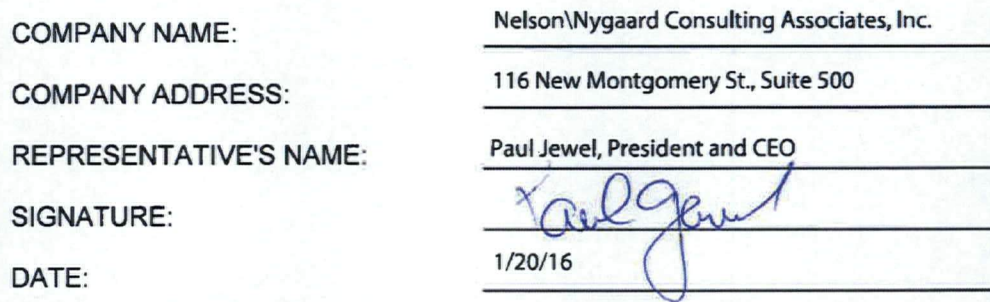 COMPANY NAME: Nelson\Nygaard Consulting Associates, Inc.
COMPANY ADDRESS: 116 New Montgomery St., Suite 500
REPRESENTATIVE'S NAME: Paul Jewel, President and CEO
SIGNATURE: Paul Jewel
DATE: 1/20/16